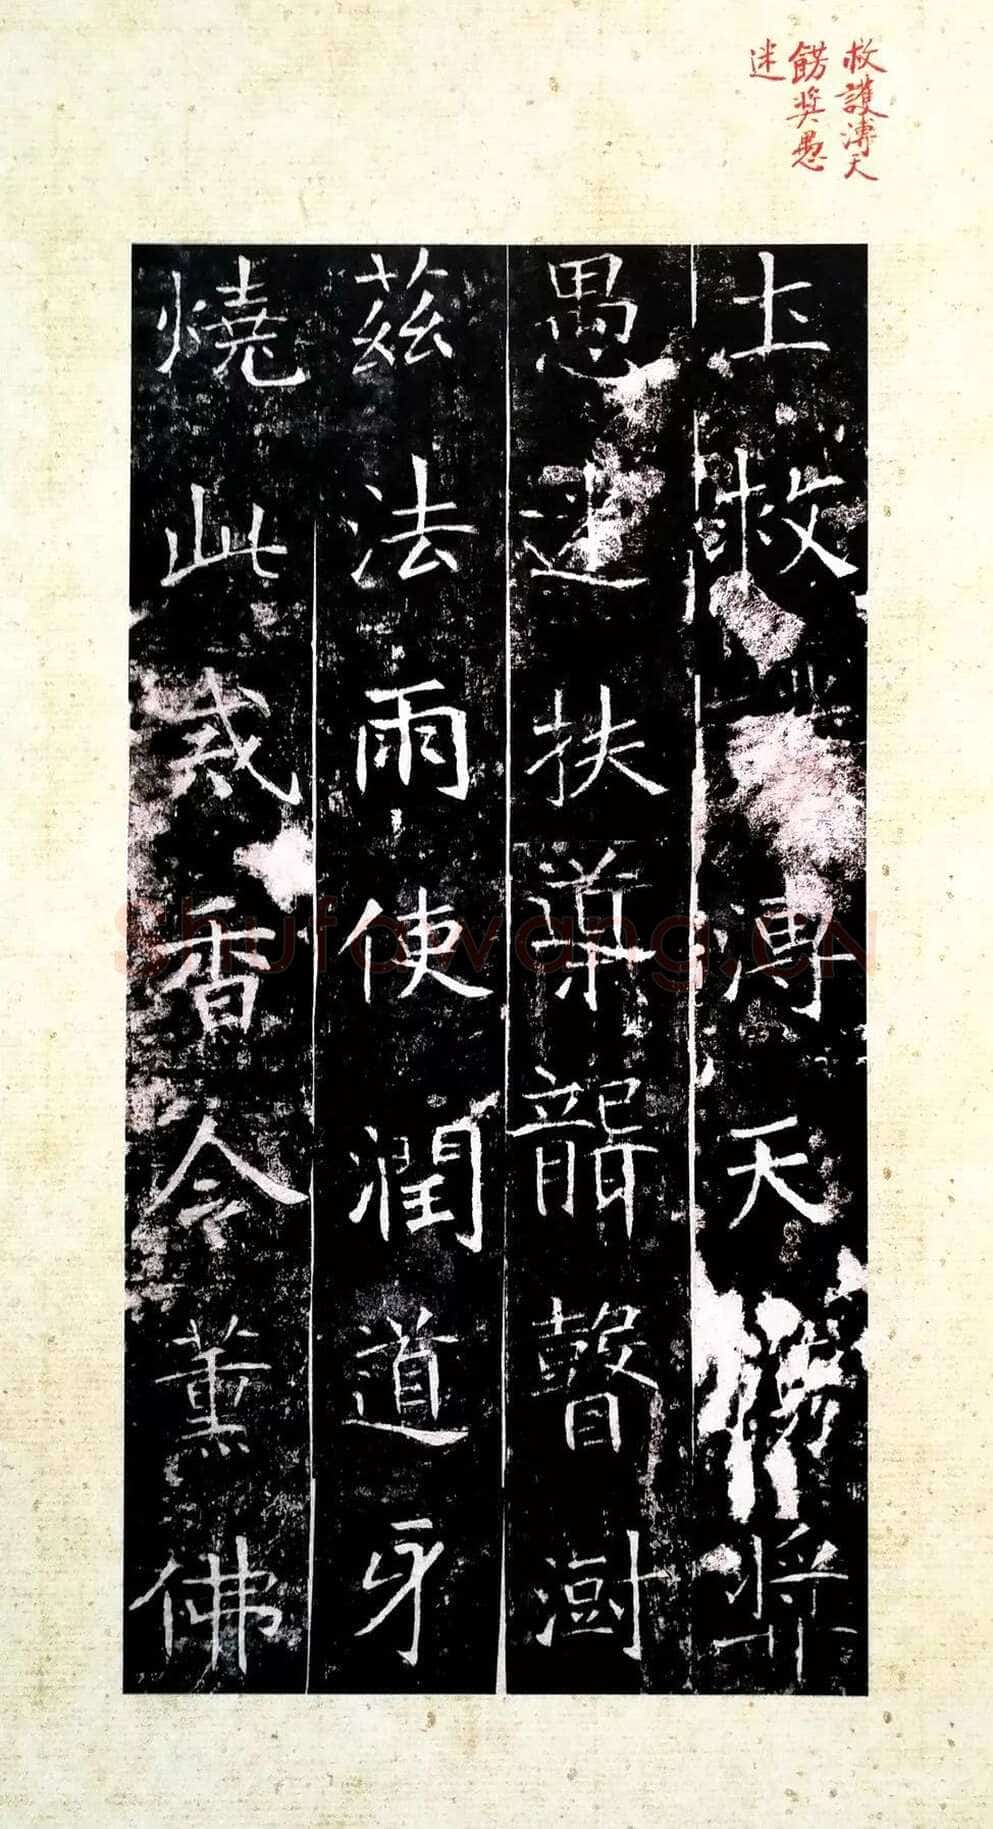 救護溥天
餝奬愚
迷
土救溥天餝奬
愚迷扶導聾瞽澍
茲法雨使潤道牙
燒此戒香令薰佛
Shufawang.CN